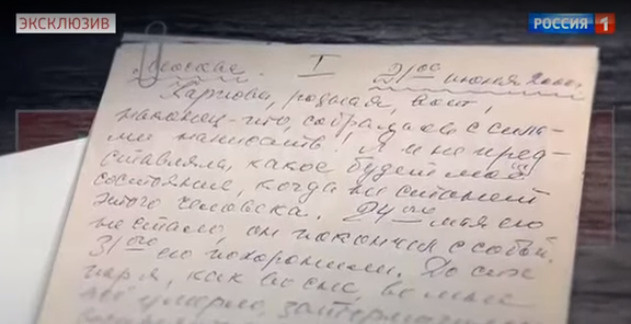 ЭКСКЛЮЗИВ
РОССИЯ 1
Москва. I 21ое июня
Харнова, родная, вот,
наконец-то, собралась с сила-
ми написать! Я и не пред-
ставляла, какое будет моё
состояние, когда не станет
этого человека. 24ого мая его
не стало, он покончил с собой.
31ого его похоронили. До сих
пор я, как во сне, во мне
всё умерло,